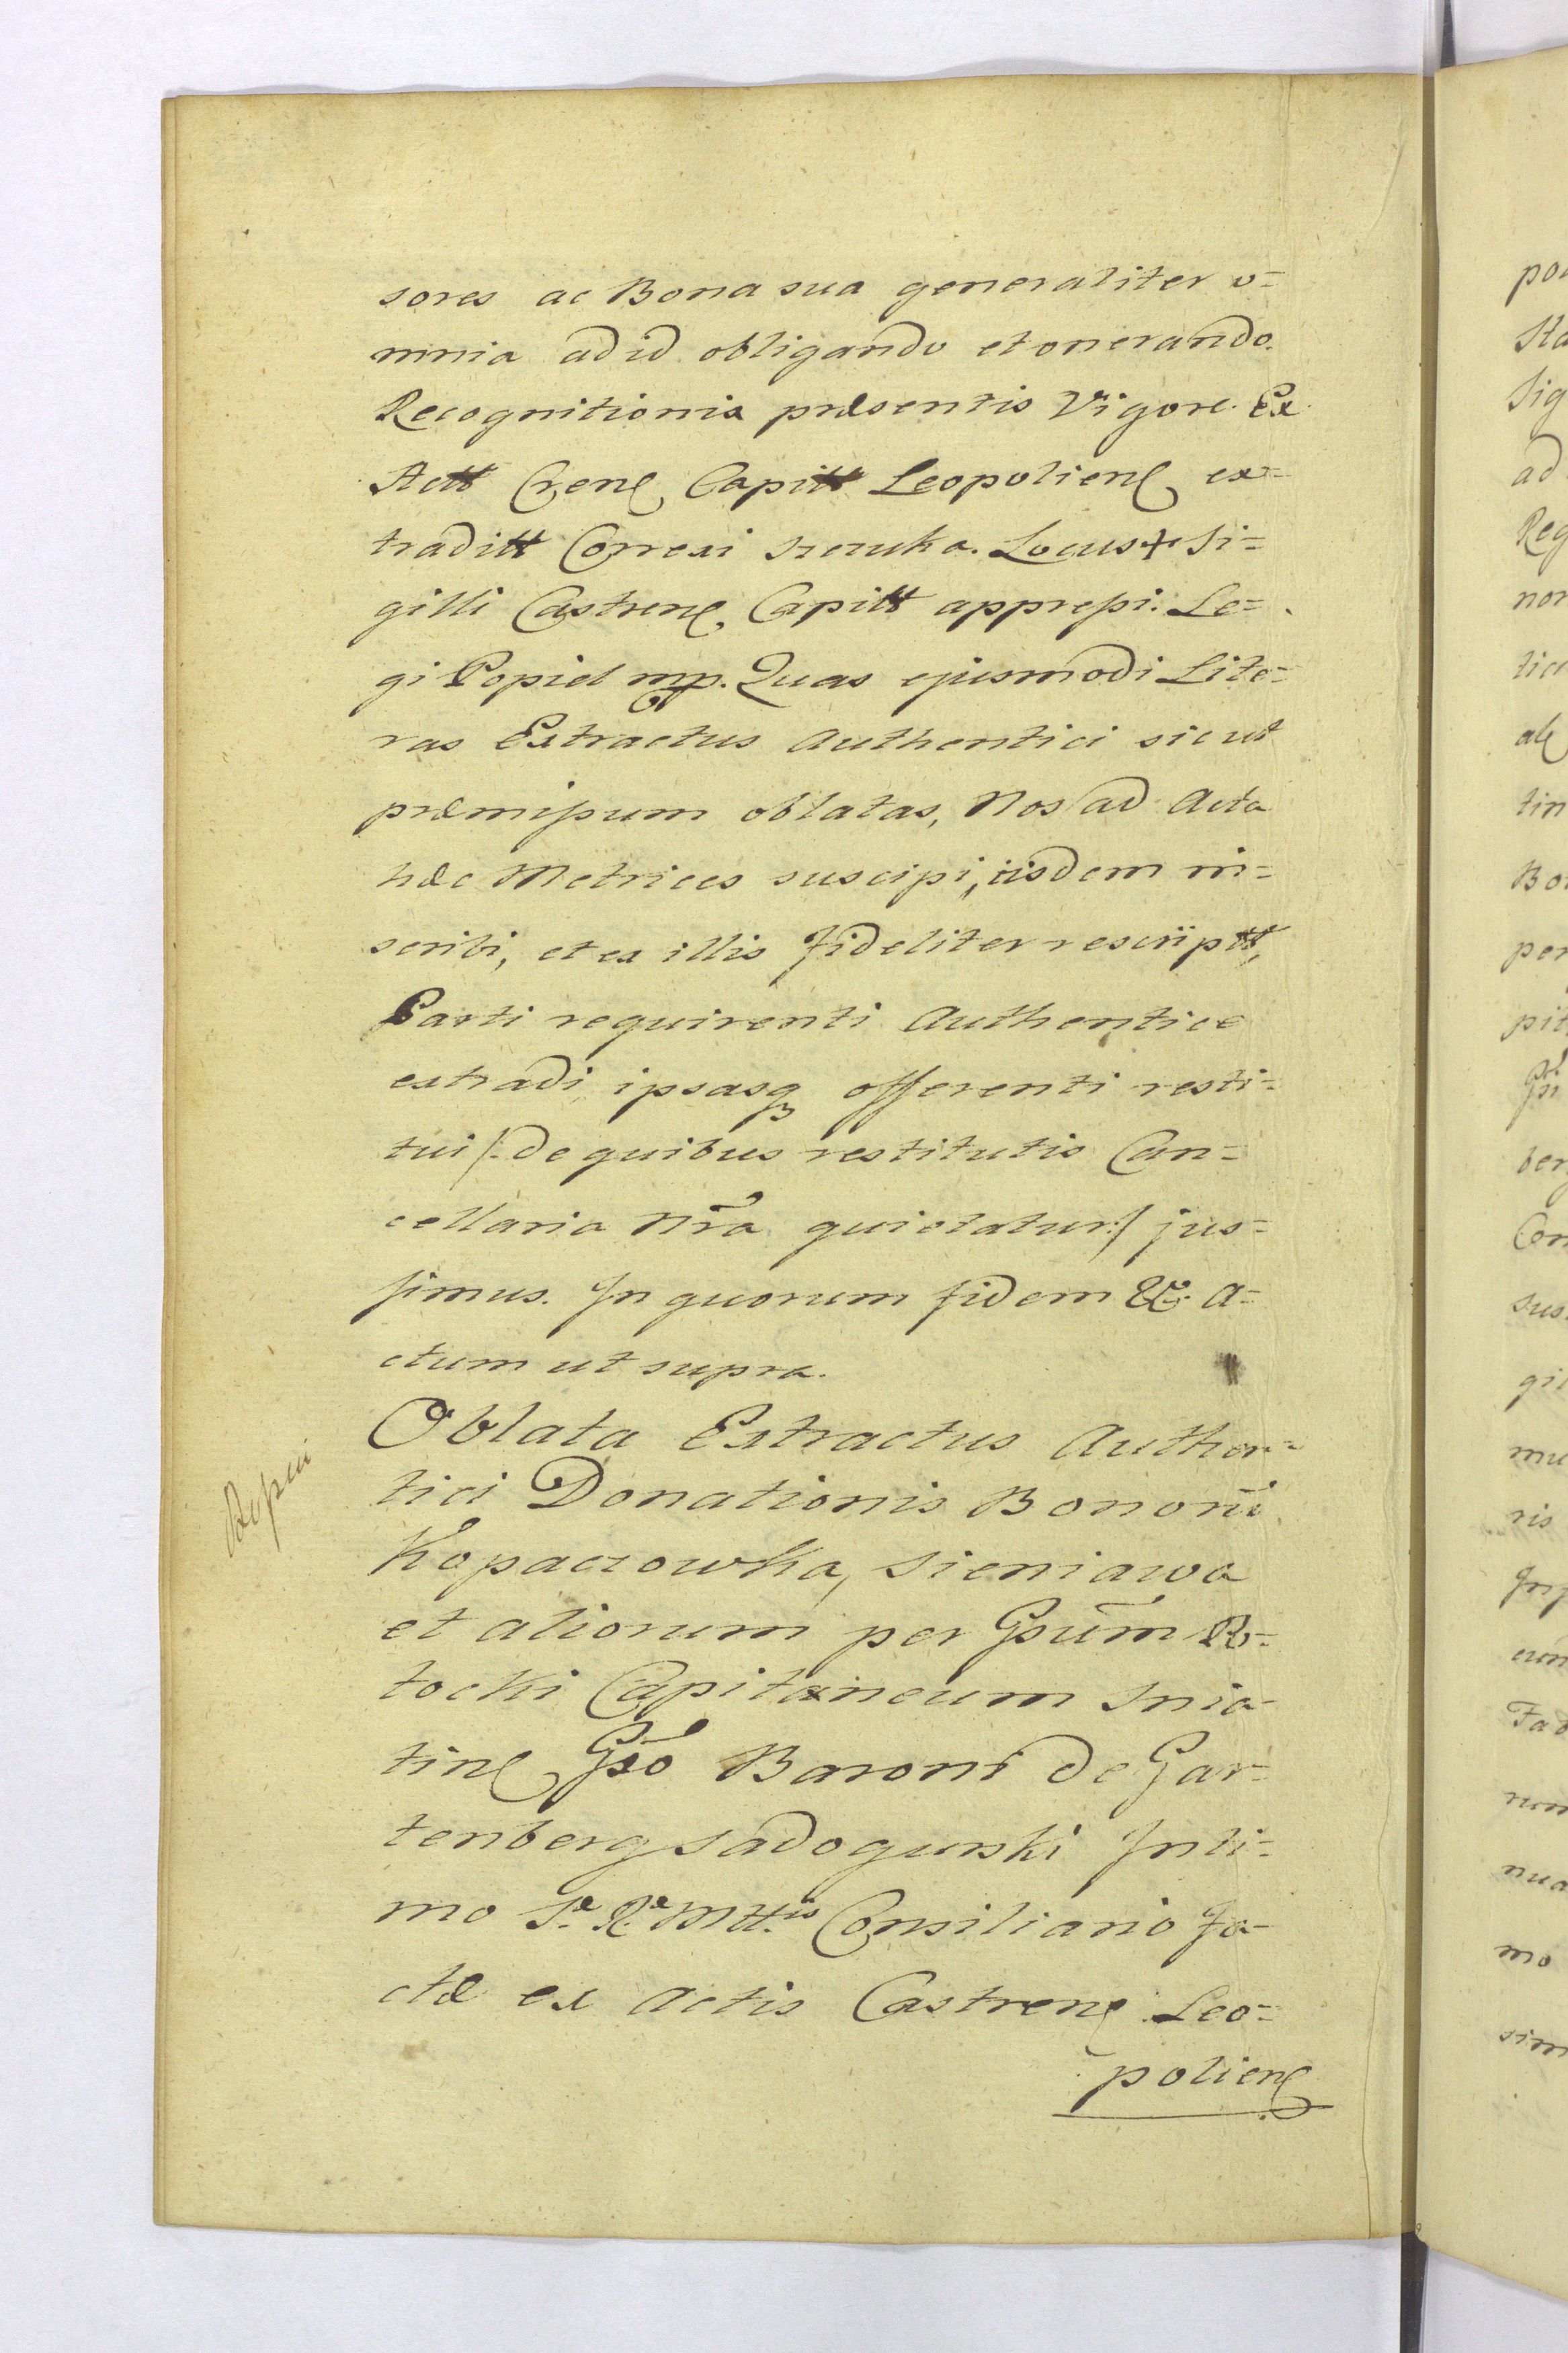 sores ac Bona sua generaliter o=
mnia ad id obligando et onerando.
Recognitionis præsentis Vigore. Ex
Actt Crenẜ Capittt Leopolienẜ ex=
traditt Correxi Szczuka. Locus + Si=
gilli Castrenẜ Capitt appressi. Le=
gi Popiel mp. Quas ejusmodi Lite=
ras Extractus Authentici sicut
præmissum oblatas, Nos ad Acta
hæc Metrices suscipi, iisdem in=
scribi, et ex illis fideliter rescriptt,
Parti requirenti Authentice
extradi, ipsasq3 offerenti resti=
tui /: de quibus restitutis Can=
cellaria Nrã quietatur :/ jus=
simus. In quorum fidem &c. A=
ctum ut supra.
Oblata Extractus Authen=
tici Donationis Bonorũ
Kopaczowka, Sieniawa
et aliorum per Gsũm Po=
tocki Capitaneum Snia=
tinẜ Gsõ Baroni de Gar=
tenberg Sadogurski Inti=
mo S.æ R.æ Mtt.is Consiliario fa=
ctæ ex Actis Castrenẜ Leo=
polienẜ